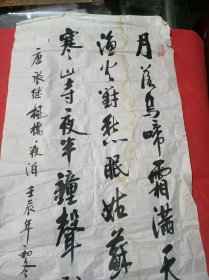 月落烏啼霜滿天
漁火對愁眠姑蘇
寒山寺夜半鐘聲
唐張継楓橋夜泊 壬辰年初冬